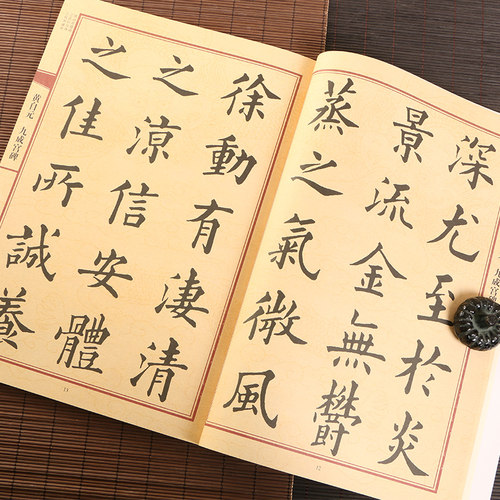 深尤至於炎
景流金無鬱
蒸之氣微風
徐動有淒清
之涼信安體
之佳所誠養
黄自元 九成宫碑
九成宫
12
13